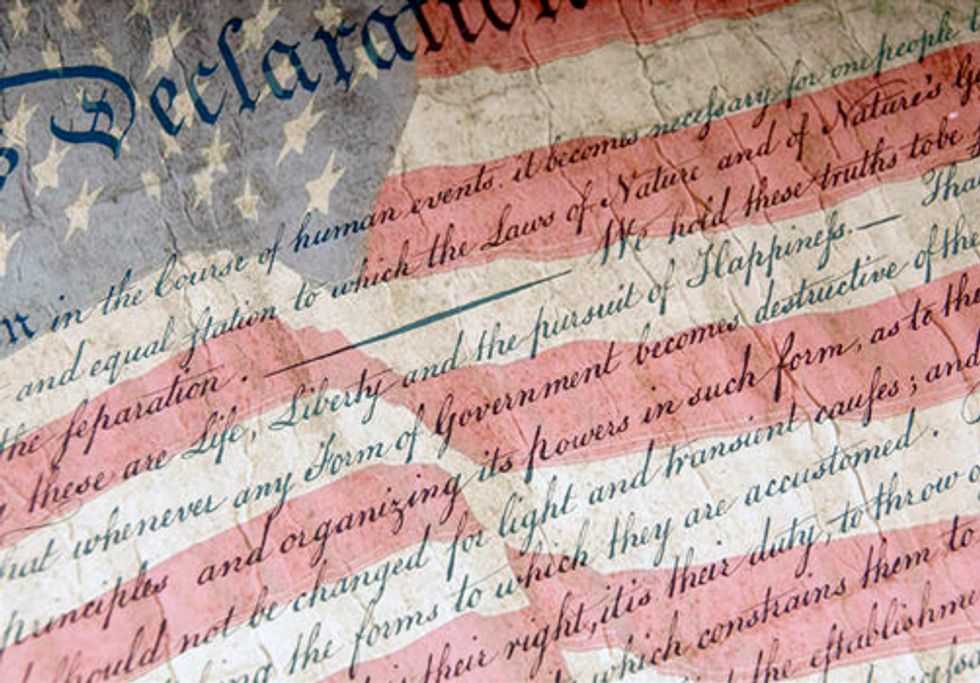 Declaration
in the Course of human events. it becomes necessary for one people
and equal station to which the Laws of Nature and of Nature's
the separation. — We hold these truths tobe
these are Life, Liberty and the pursuit of Happiness. — Tha
whenever any Form of Government becomes destructive of the
principles and organizing its powers in such form, as to th
should not be changed for light and transient causes; and
the forms to which they are accustomed.
their right, itis their duty, to throw
which constrains them to
the establishm